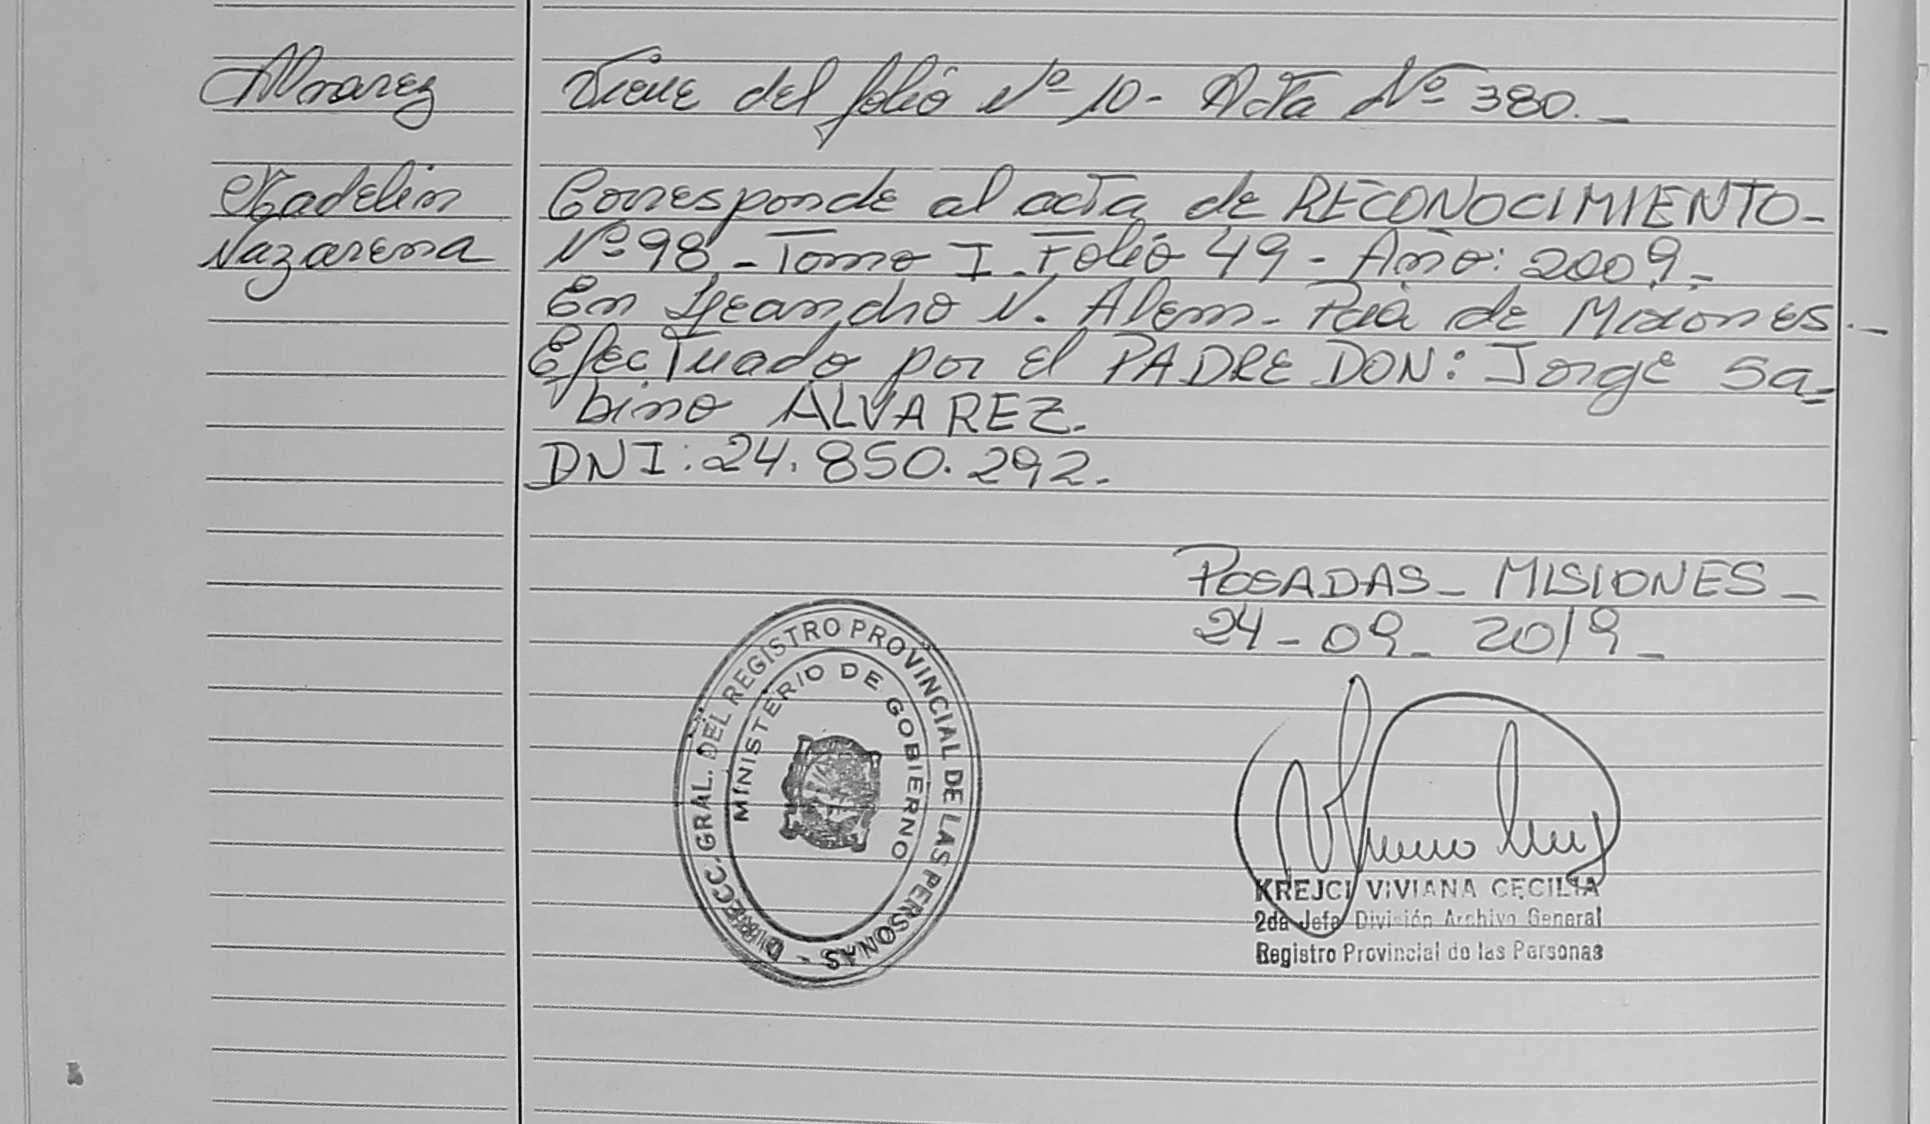 Alvarez
Madelin
Nazarena
Viene del folio Nº 10 - Acta Nº 380.-
Corresponde al acta de RECONOCIMIENTO-
Nº 98 - Tomo I - Folio 49 - Año: 2009.-
En Leandro N. Alem - Pcia de Misiones.-
Efectuado por el PADRE DON: Jorge Sa-
bino ALVAREZ.
DNI: 24.850.292.
POSADAS - MISIONES -
24 - 09 - 2019 -
DIRECC. GRAL. DEL REGISTRO PROVINCIAL DE LAS PERSONAS -
MINISTERIO DE GOBIERNO
KREJCI VIVIANA CECILIA
2da Jefa División Archivo General
Registro Provincial de las Personas